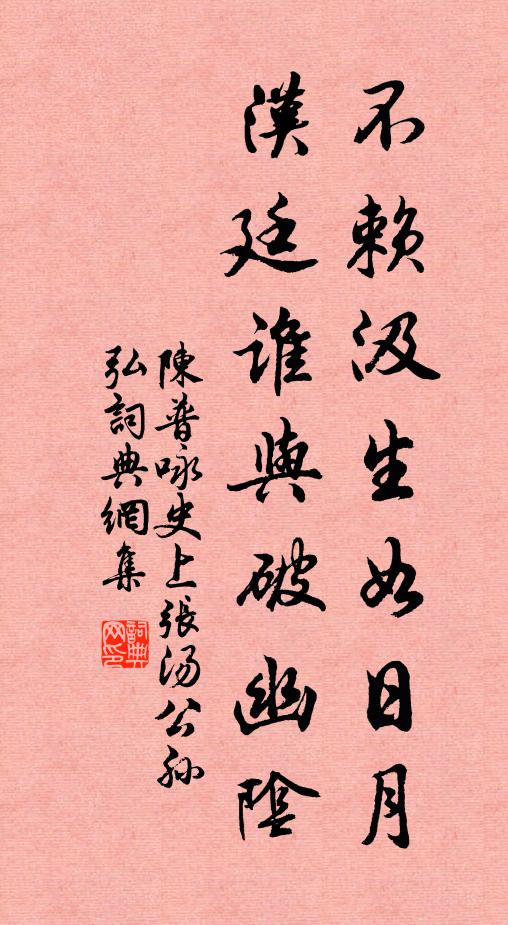 不賴汲生如日月
漢廷誰與破幽陰
陳普咏史上張湯公孫
弘詞典網集
詞典
网印